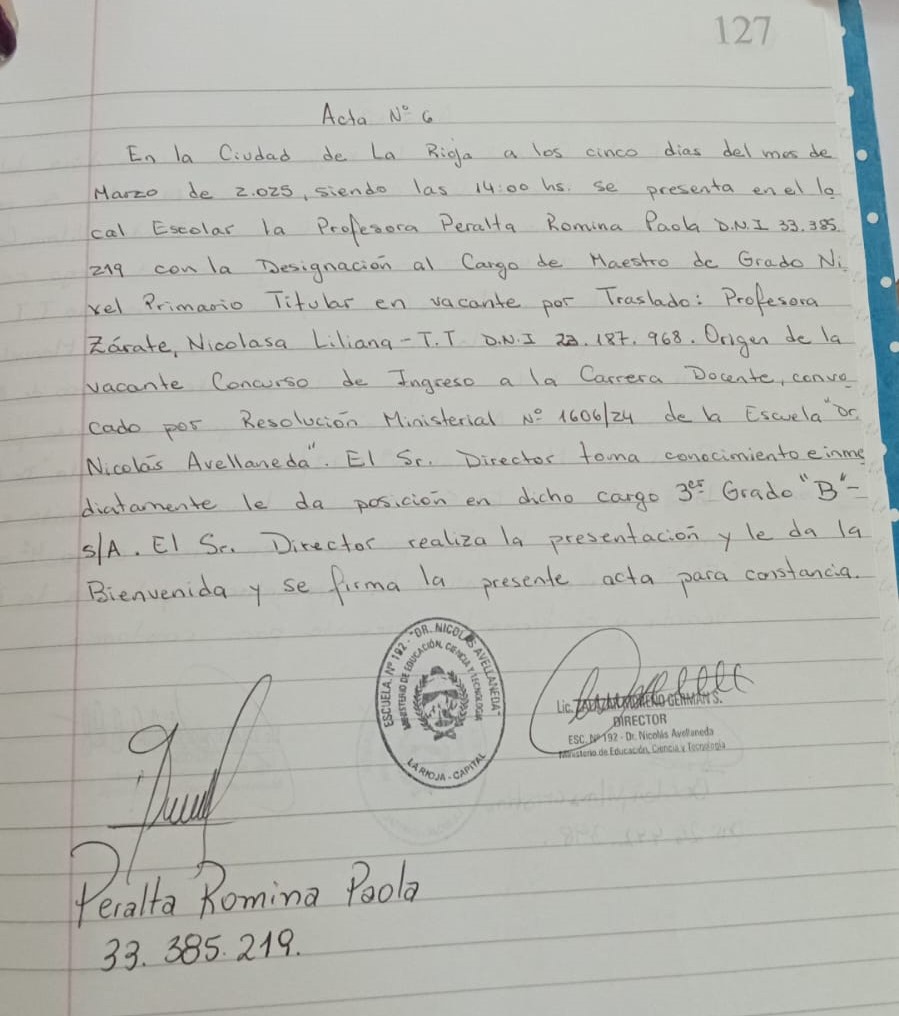 127
Acta Nº 6
En la Ciudad de La Rioja a los cinco dias del mes de
Marzo de 2.025, siendo las 14:00 hs. se presenta en el lo
cal Escolar la Profesora Peralta Romina Paola D.N.I 33.385.
219 con la Designación al Cargo de Maestro de Grado Ni
vel Primario Titular en vacante por Traslado: Profesora
Zárate, Nicolasa Liliana - T.T D.N.I 23.187.968. Origen de la
vacante Concurso de Ingreso a la Carrera Docente, convo
cado por Resolución Ministerial Nº 1606/24 de la Escuela "Dr.
Nicolás Avellaneda". El Sr. Director toma conocimiento e inme
diatamente le da posición en dicho cargo 3er Grado "B" -
S/A. El Sr. Director realiza la presentación y le da la
Bienvenida y se firma la presente acta para constancia.
ESCUELA Nº 192 - "DR. NICOLÁS AVELLANEDA"
MINISTERIO DE EDUCACIÓN, CIENCIA Y TECNOLOGIA
LA RIOJA - CAPITAL
Lic. GERMAN S.
DIRECTOR
ESC. Nº 192 - Dr. Nicolás Avellaneda
Ministerio de Educación, Ciencia y Tecnología
Peralta Romina Paola
33.385.219.